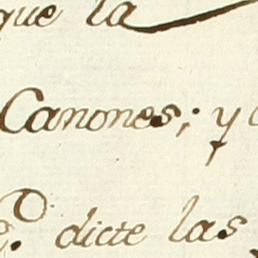 que la
Canones; y
dicte las